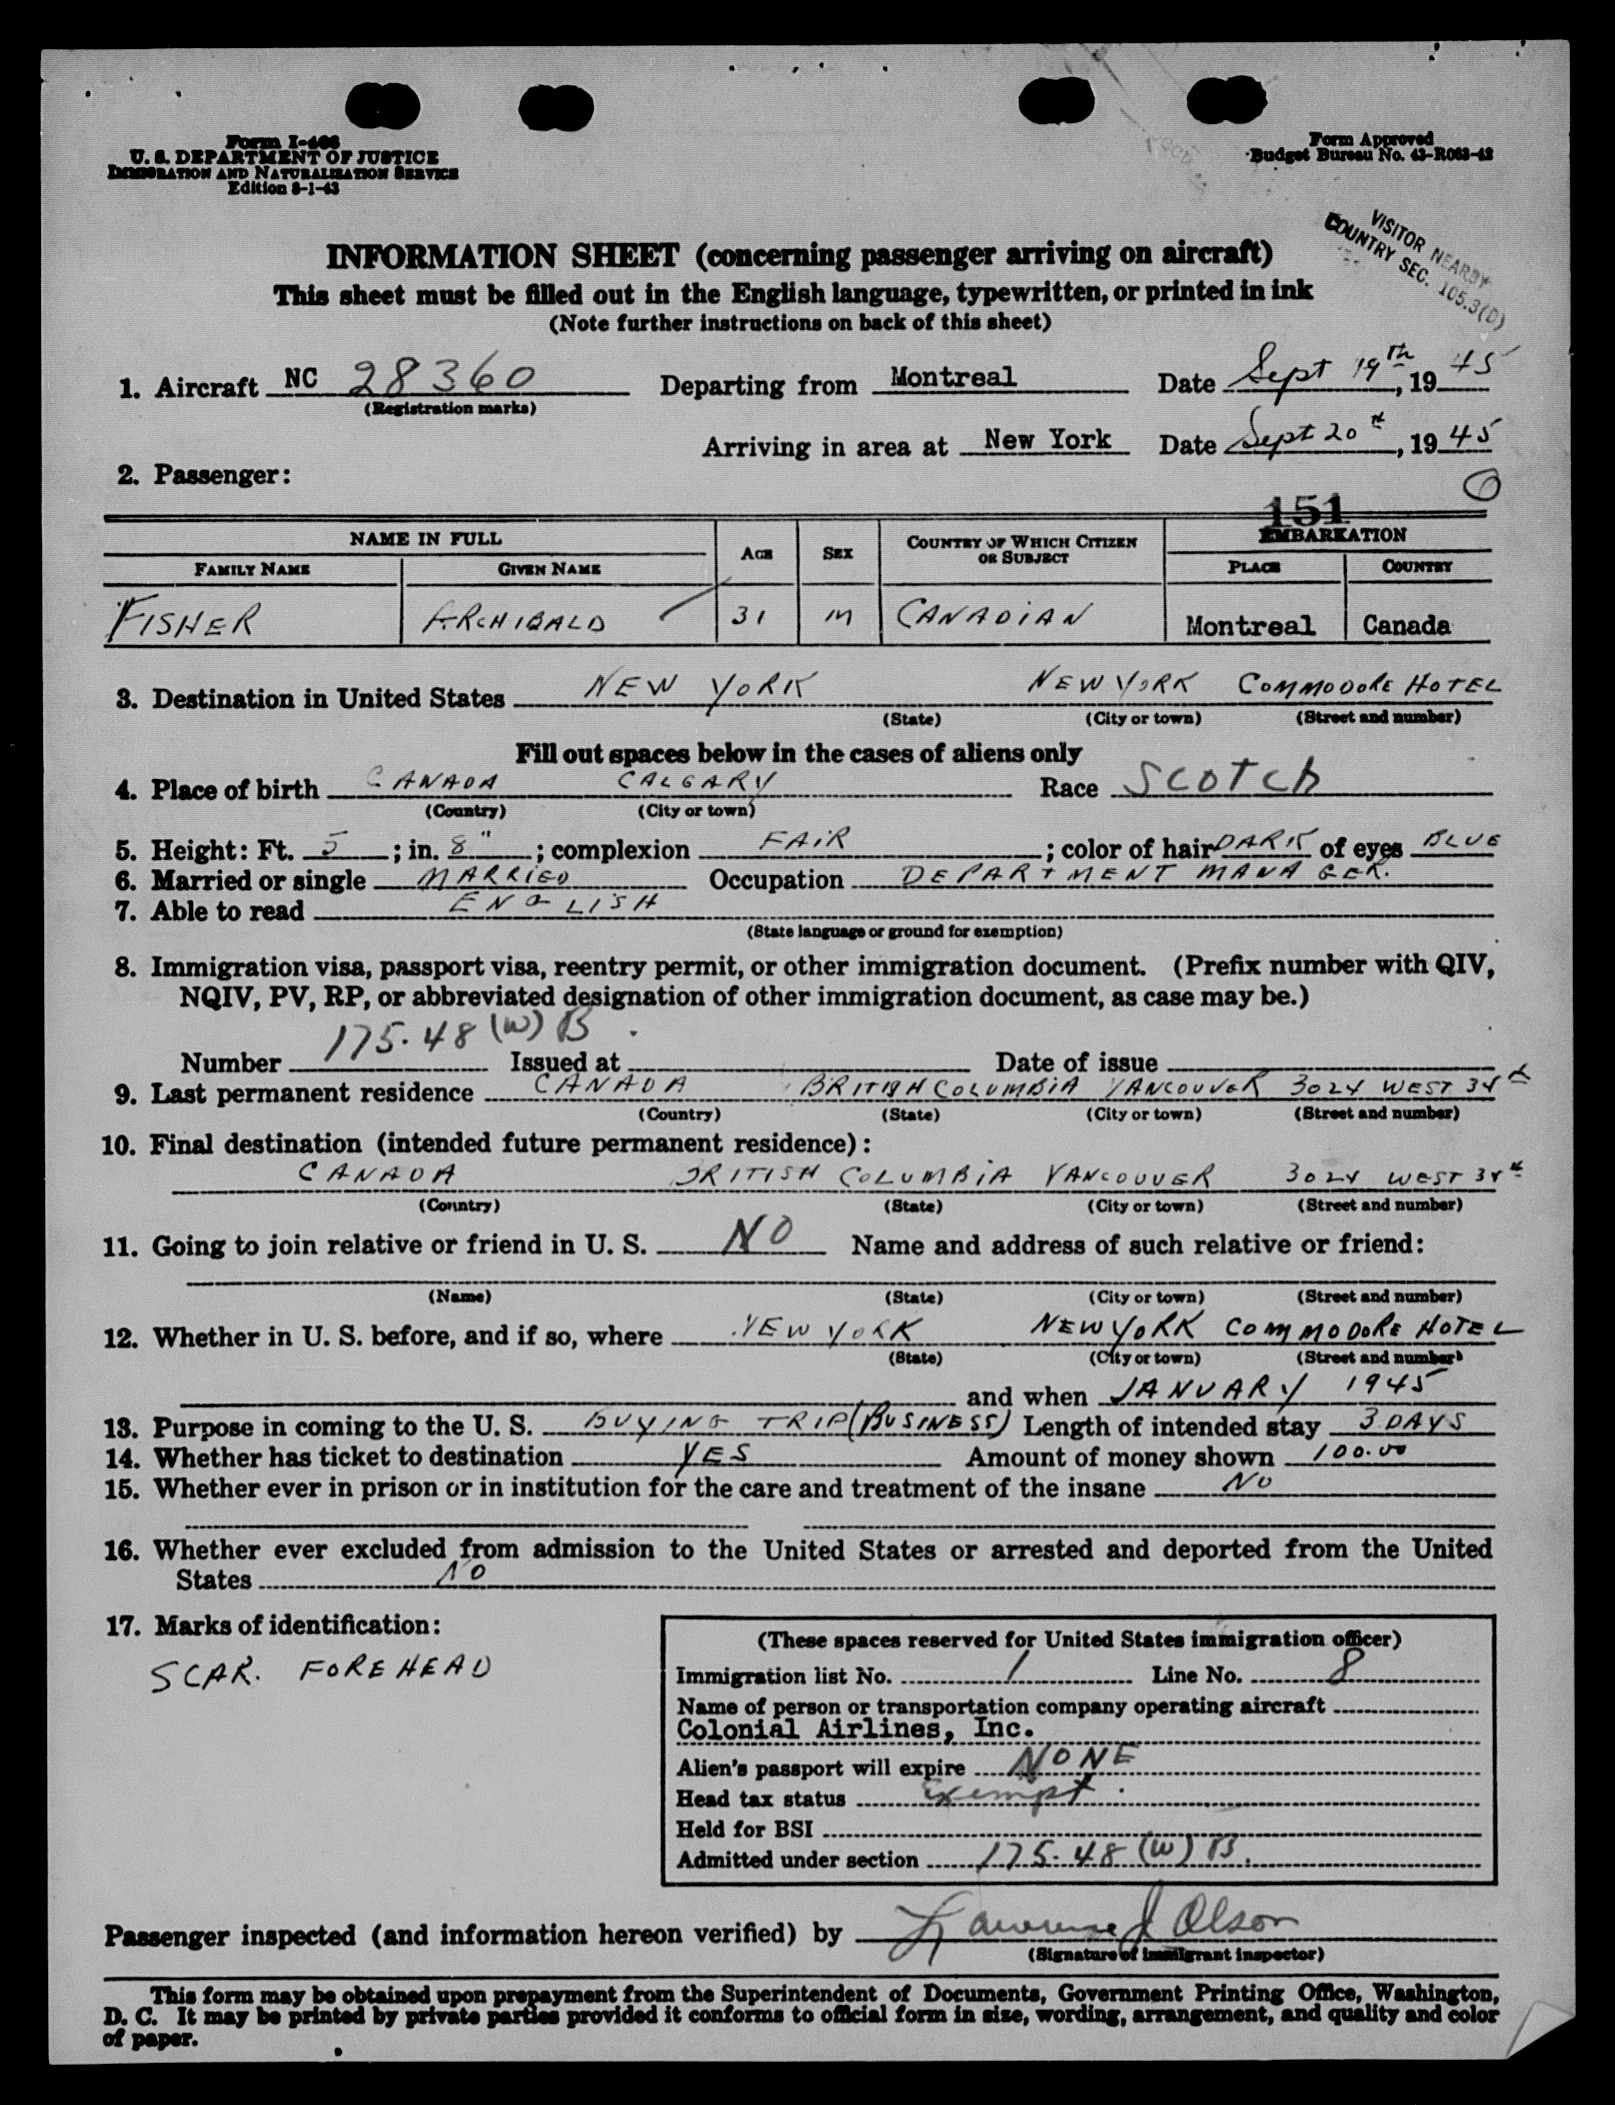 Form I-466
U. S. DEPARTMENT OF JUSTICE
IMMIGRATION AND NATURALIZATION SERVICE
Edition 8-1-43
Form Approved
Budget Bureau No. 43-R063-42
VISITOR NEARBY
COUNTRY SEC. 105.3(D)
INFORMATION SHEET (concerning passenger arriving on aircraft)
This sheet must be filled out in the English language, typewritten, or printed in ink
(Note further instructions on back of this sheet)
1. Aircraft NC 28360 Departing from Montreal Date Sept 19th, 1945
(Registration marks)
Arriving in area at New York Date Sept 20th, 1945
2. Passenger:
151
NAME IN FULL AGE SEX COUNTRY OF WHICH CITIZEN OR SUBJECT EMBARKATION
FAMILY NAME GIVEN NAME PLACE COUNTRY
FISHER ARCHIBALD 31 M CANADIAN Montreal Canada
3. Destination in United States NEW YORK NEW YORK COMMODORE HOTEL
(State) (City or town) (Street and number)
Fill out spaces below in the cases of aliens only
4. Place of birth CANADA CALGARY Race SCOTCH
(Country) (City or town)
5. Height: Ft. 5 ; in. 8" ; complexion FAIR ; color of hair DARK of eyes BLUE
6. Married or single MARRIED Occupation DEPARTMENT MANAGER.
7. Able to read ENGLISH
(State language or ground for exemption)
8. Immigration visa, passport visa, reentry permit, or other immigration document. (Prefix number with QIV,
NQIV, PV, RP, or abbreviated designation of other immigration document, as case may be.)
Number 175.48 (W) B Issued at Date of issue
9. Last permanent residence CANADA BRITISH COLUMBIA VANCOUVER 3024 WEST 34th
(Country) (State) (City or town) (Street and number)
10. Final destination (intended future permanent residence):
CANADA BRITISH COLUMBIA VANCOUVER 3024 WEST 34th
(Country) (State) (City or town) (Street and number)
11. Going to join relative or friend in U. S. NO Name and address of such relative or friend:
(Name) (State) (City or town) (Street and number)
12. Whether in U. S. before, and if so, where NEW YORK NEW YORK COMMODORE HOTEL
(State) (City or town) (Street and number)
and when JANUARY 1945
13. Purpose in coming to the U. S. BUYING TRIP (BUSINESS) Length of intended stay 3 DAYS
14. Whether has ticket to destination YES Amount of money shown 100.00
15. Whether ever in prison or in institution for the care and treatment of the insane NO
16. Whether ever excluded from admission to the United States or arrested and deported from the United
States NO
17. Marks of identification:
SCAR. FOREHEAD
(These spaces reserved for United States immigration officer)
Immigration list No. 1 Line No. 8
Name of person or transportation company operating aircraft
Colonial Airlines, Inc.
Alien's passport will expire NONE
Head tax status Exempt.
Held for BSI
Admitted under section 175.48 (W) B.
Passenger inspected (and information hereon verified) by Lawrence J Olson
(Signature of immigrant inspector)
This form may be obtained upon prepayment from the Superintendent of Documents, Government Printing Office, Washington,
D. C. It may be printed by private parties provided it conforms to official form in size, wording, arrangement, and quality and color
of paper.